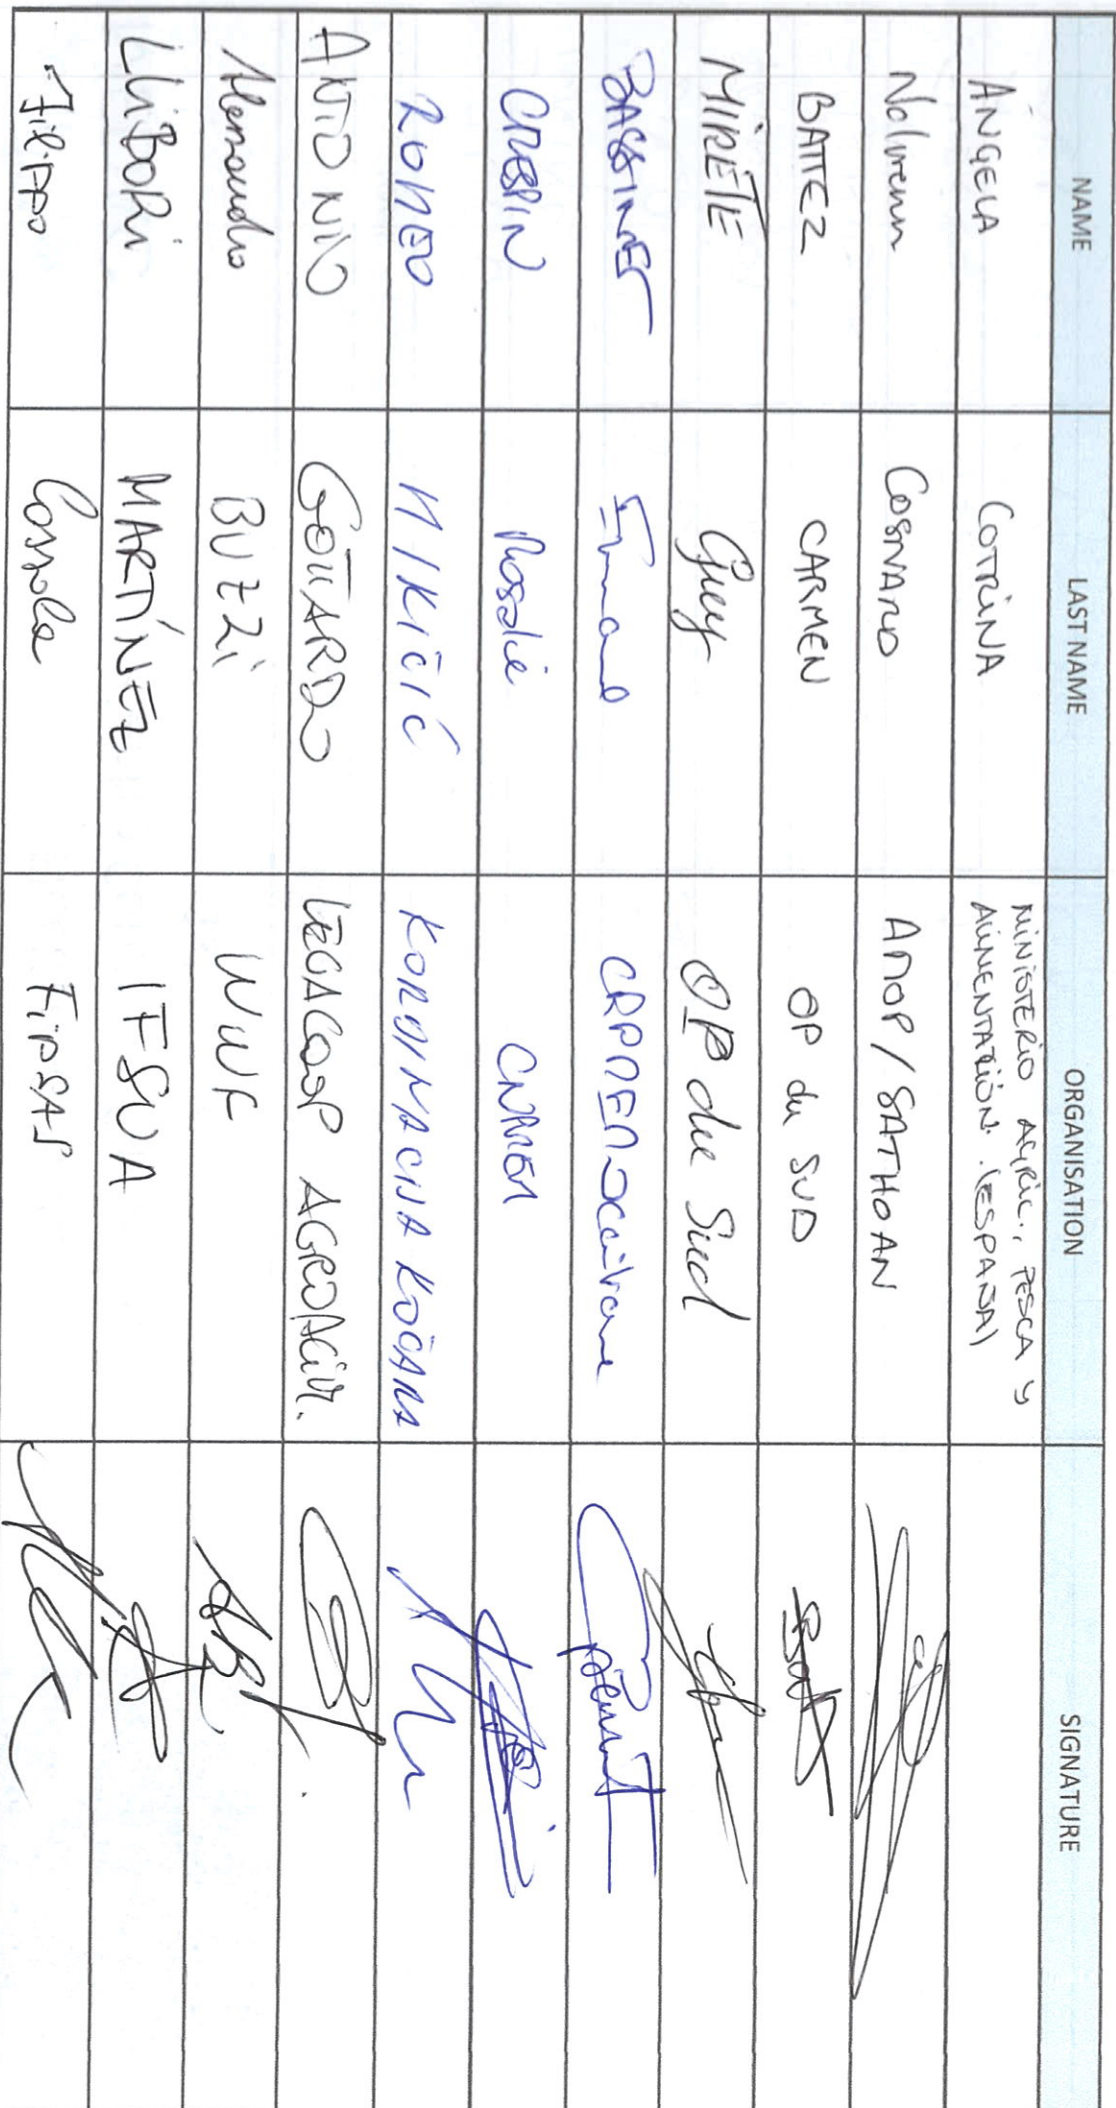 NAME LAST NAME ORGANISATION SIGNATURE
ÁNGELA COTRINA MINISTERIO AGRIC., PESCA Y
ALIMENTACIÓN. (ESPAÑA)
COSNARD AMOP / SATHOAN
BATEZ CARMEN OP du SUD
MIRETE Guy OP du Sud
BASSINET CRPMEM Occitanie
CRESPIN Rosalie CNPMEM
ROMEO MIKIČIĆ KORDINACIJA KOČARA
ANTONIO GOTTARDO LEGACOOP AGROALIM.
Alessandro BUZZI WWF
LLIBORI MARTÍNEZ IFSUA
Filippo FIPSAS